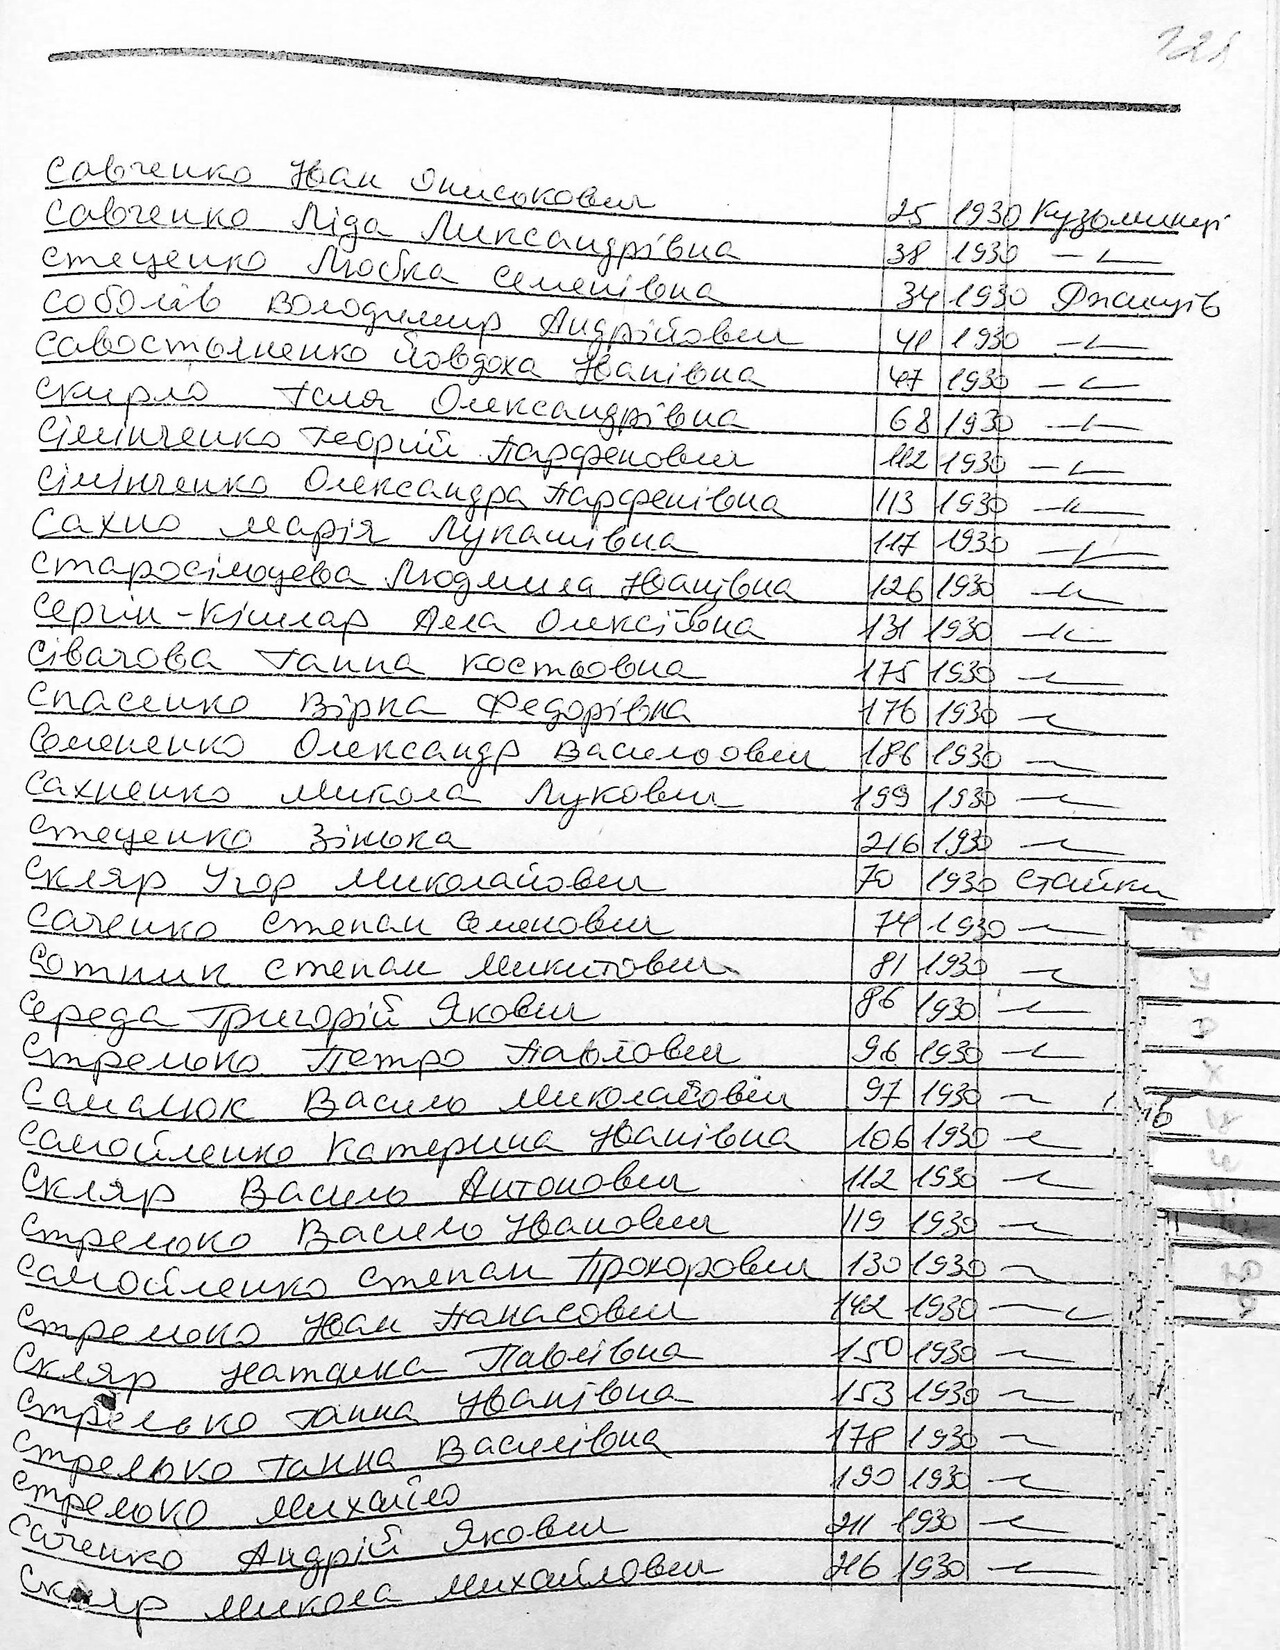 221
Савченко Іван Описькович 25 1930 Кузьминці
Савченко Ліда Лиександрівна 38 1930 -"-
Стеценко Любка Семенівна 34 1930 Ржищів
Соболів Володимир Андрійович 41 1930 -"-
Савостьяненко Йовдоха Іванівна 47 1930 -"-
Скирло Галя Олександрівна 68 1930 -"-
Сімінченко Георгій Парфенович 112 1930 -"-
Сімінченко Олександра Парфенівна 113 1930 -"-
Сахно Марія Лукашівна 117 1930 -"-
Старосільцева Людмила Іванівна 126 1930 -"-
Сергін-Кішлар Алла Олексіївна 131 1930 -"-
Сівачова Ганна Костьовна 175 1930 -"-
Спасенко Вірка Федорівна 176 1930 -"-
Семененко Олександр Васильович 186 1930 -"-
Сахненко Микола Лукович 199 1930 -"-
Стеценко Зінька 216 1930 -"-
Скляр Угор Миколайович 70 1930 Стайки
Саченко Степан Семенович 74 1930 -"-
Сотник Степан Микитович 81 1930 -"-
Середа Григорій Якович 86 1930 -"-
Стрелько Петро Павлович 96 1930 -"-
Саманюк Василь Миколайович 97 1930 -"-
Самойленко Катерина Іванівна 106 1930 -"-
Скляр Василь Антонович 112 1930 -"-
Стрелько Василь Іванович 119 1930 -"-
Самойленко Степан Прохорович 130 1930 -"-
Стрелько Іван Панасович 142 1930 -"-
Скляр Наталка Павлівна 150 1930 -"-
Стрелько Ганна Іванівна 153 1930 -"-
Стрелько Ганна Василівна 178 1930 -"-
Стрелько Михайло 190 1930 -"-
Саченко Андрій Якович 211 1930 -"-
Скляр Микола Михайлович 216 1930 -"-